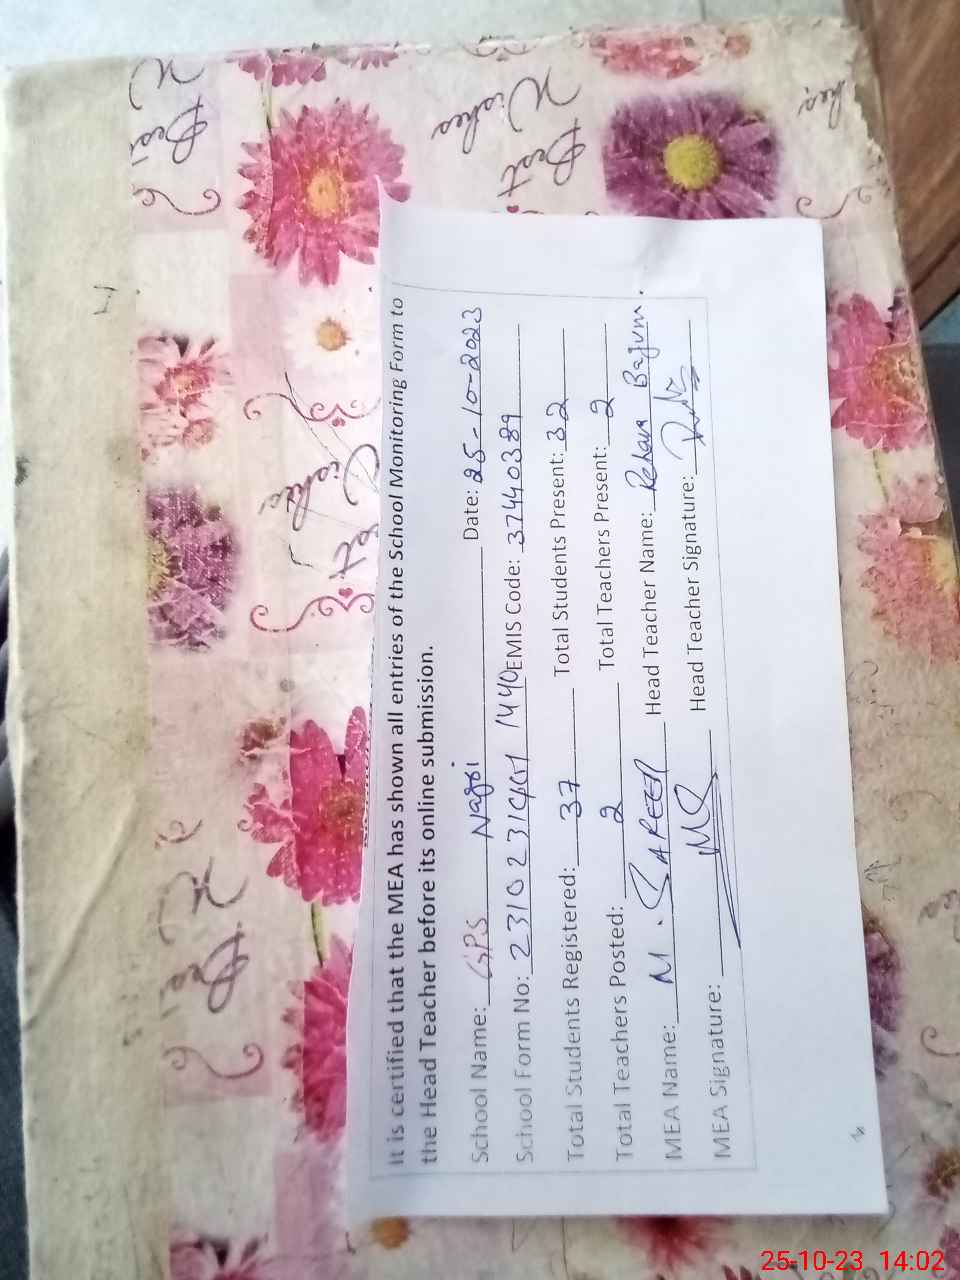 It is certified that the MEA has shown all entries of the School Monitoring Form to
the Head Teacher before its online submission.
School Name: GPS Nagri Date: 25-10-2023
School Form No: EMIS Code: 37440389
Total Students Registered: 37 Total Students Present: 32
Total Teachers Posted: 2 Total Teachers Present: 2
MEA Name: M. SAFEER Head Teacher Name: Rehana Begum
MEA Signature: Head Teacher Signature:
Best Wishes
Best Wishes
25-10-23 14:02